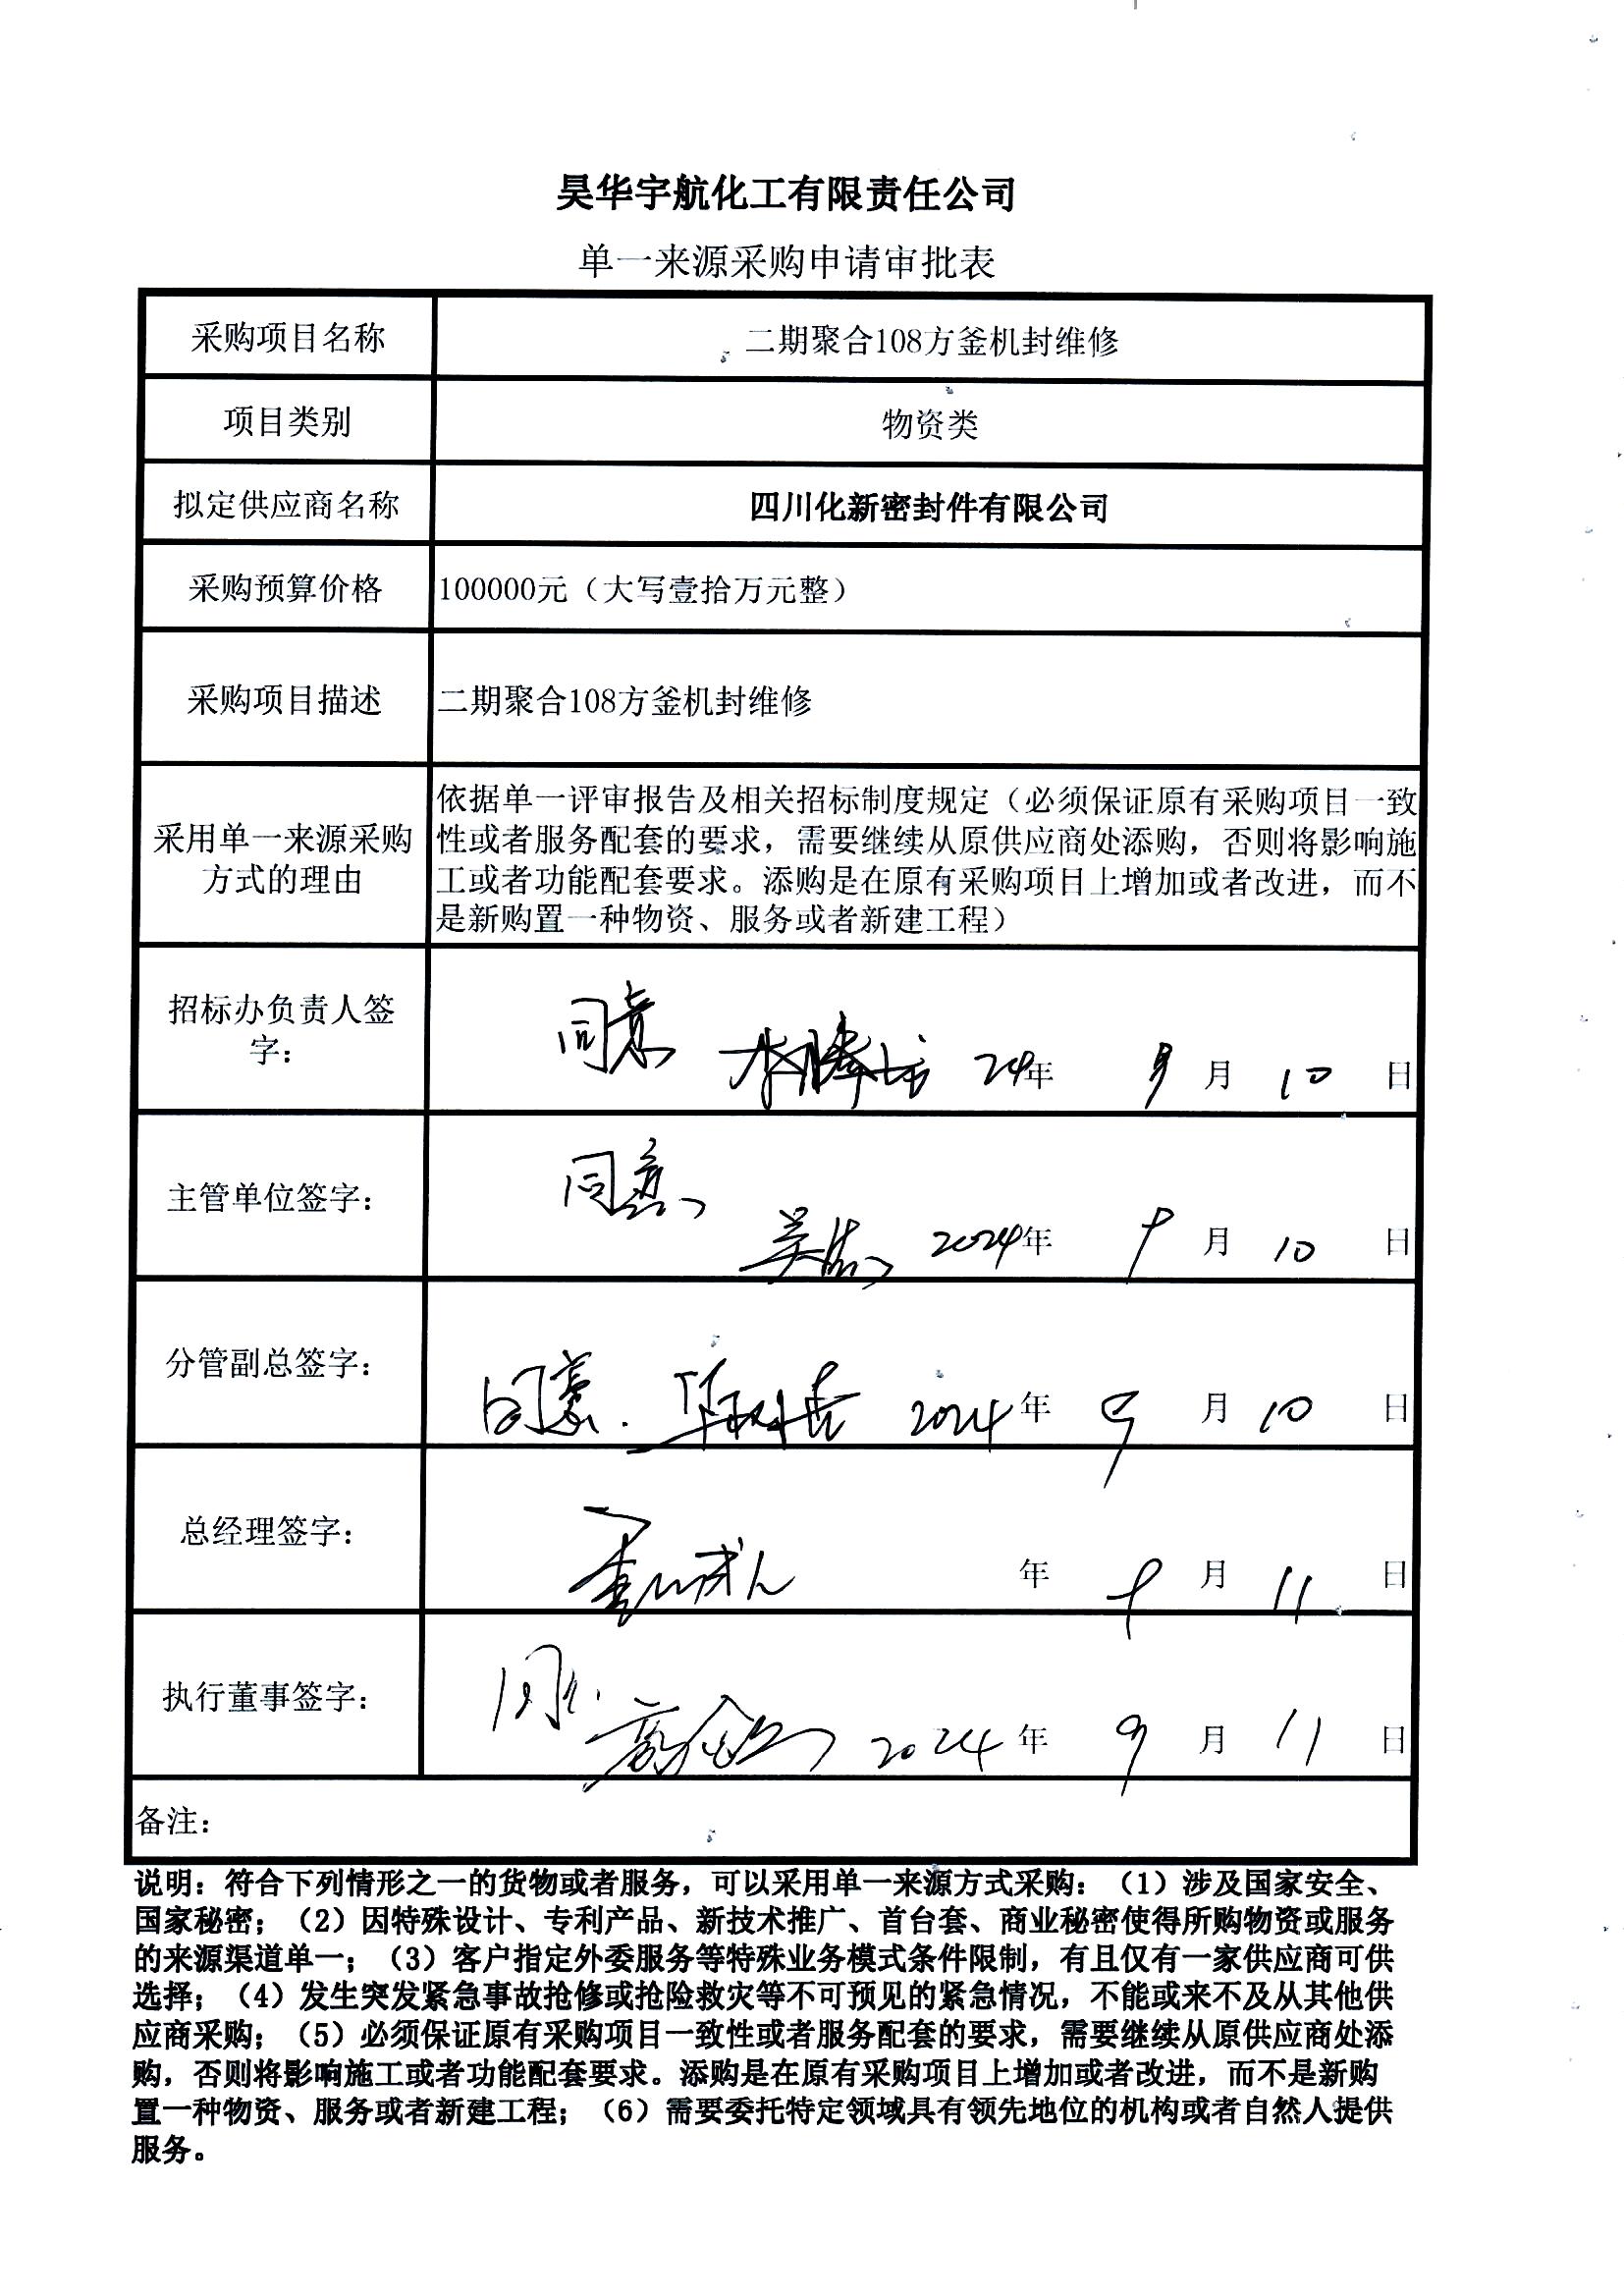 昊华宇航化工有限责任公司
单一来源采购申请审批表
采购项目名称
二期聚合108方釜机封维修
项目类别
物资类
拟定供应商名称
四川化新密封件有限公司
采购预算价格
100000元（大写壹拾万元整）
采购项目描述
二期聚合108方釜机封维修
采用单一来源采购
方式的理由
依据单一评审报告及相关招标制度规定（必须保证原有采购项目一致
性或者服务配套的要求，需要继续从原供应商处添购，否则将影响施
工或者功能配套要求。添购是在原有采购项目上增加或者改进，而不
是新购置一种物资、服务或者新建工程）
招标办负责人签
字：
同意
24年 月 10 日
主管单位签字：
同意
2024年 9 月 10 日
分管副总签字：
同意.
2024年 9 月 10 日
总经理签字：
年 9 月 11 日
执行董事签字：
2024年 9 月 11 日
备注：
说明：符合下列情形之一的货物或者服务，可以采用单一来源方式采购：（1）涉及国家安全、
国家秘密；（2）因特殊设计、专利产品、新技术推广、首台套、商业秘密使得所购物资或服务
的来源渠道单一；（3）客户指定外委服务等特殊业务模式条件限制，有且仅有一家供应商可供
选择；（4）发生突发紧急事故抢修或抢险救灾等不可预见的紧急情况，不能或来不及从其他供
应商采购；（5）必须保证原有采购项目一致性或者服务配套的要求，需要继续从原供应商处添
购，否则将影响施工或者功能配套要求。添购是在原有采购项目上增加或者改进，而不是新购
置一种物资、服务或者新建工程；（6）需要委托特定领域具有领先地位的机构或者自然人提供
服务。